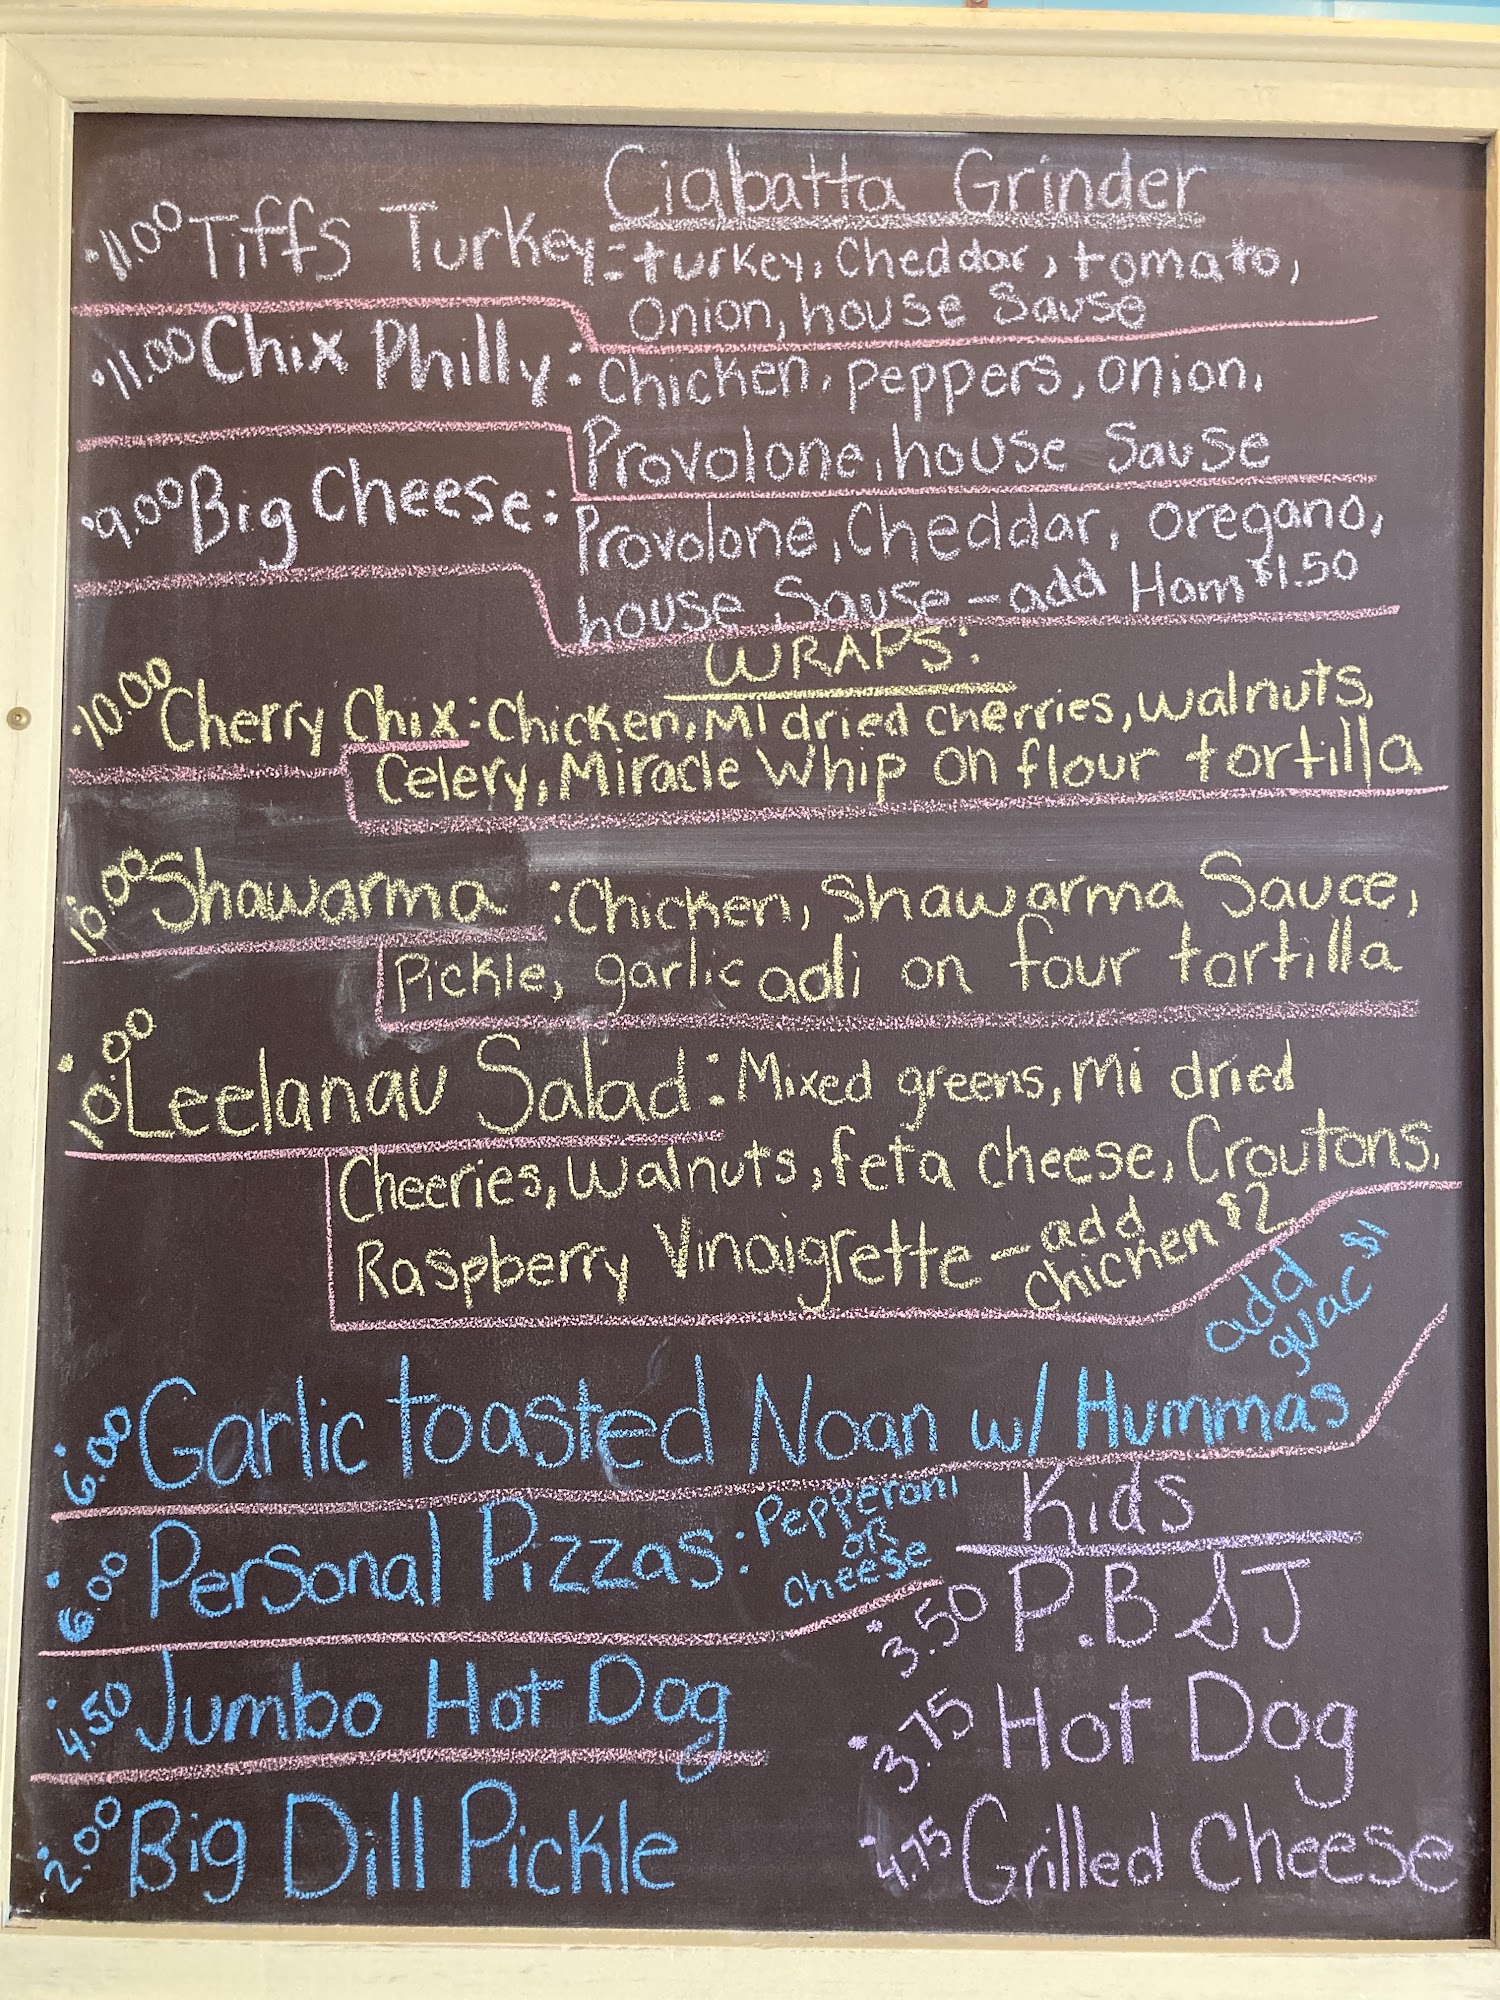 Ciabatta Grinder
.11.00 Tiffs Turkey: turkey, Cheddar, tomato,
Onion, house Sause
.11.00 Chix Philly: Chicken, peppers, onion,
Provolone, house Sause
.9.00 Big Cheese: Provolone, Cheddar, oregano,
house Sause - add Ham $1.50
WRAPS:
.10.00 Cherry Chix: Chicken, MI dried cherries, walnuts,
Celery, Miracle Whip on flour tortilla
10.00 Shawarma : Chicken, Shawarma Sauce,
Pickle, garlic aoli on four tortilla
.10.00 Leelanau Salad: Mixed greens, Mi dried
Cheeries, Walnuts, feta cheese, Croutons,
Raspberry Vinaigrette - add
chicken $2
add
guac $1
.6.00 Garlic toasted Noan w/ Hummas
.6.00 Personal Pizzas: Pepperoni
or
cheese
.4.50 Jumbo Hot Dog
.2.00 Big Dill Pickle
Kids
.3.50 P.B & J
.3.75 Hot Dog
.4.75 Grilled Cheese